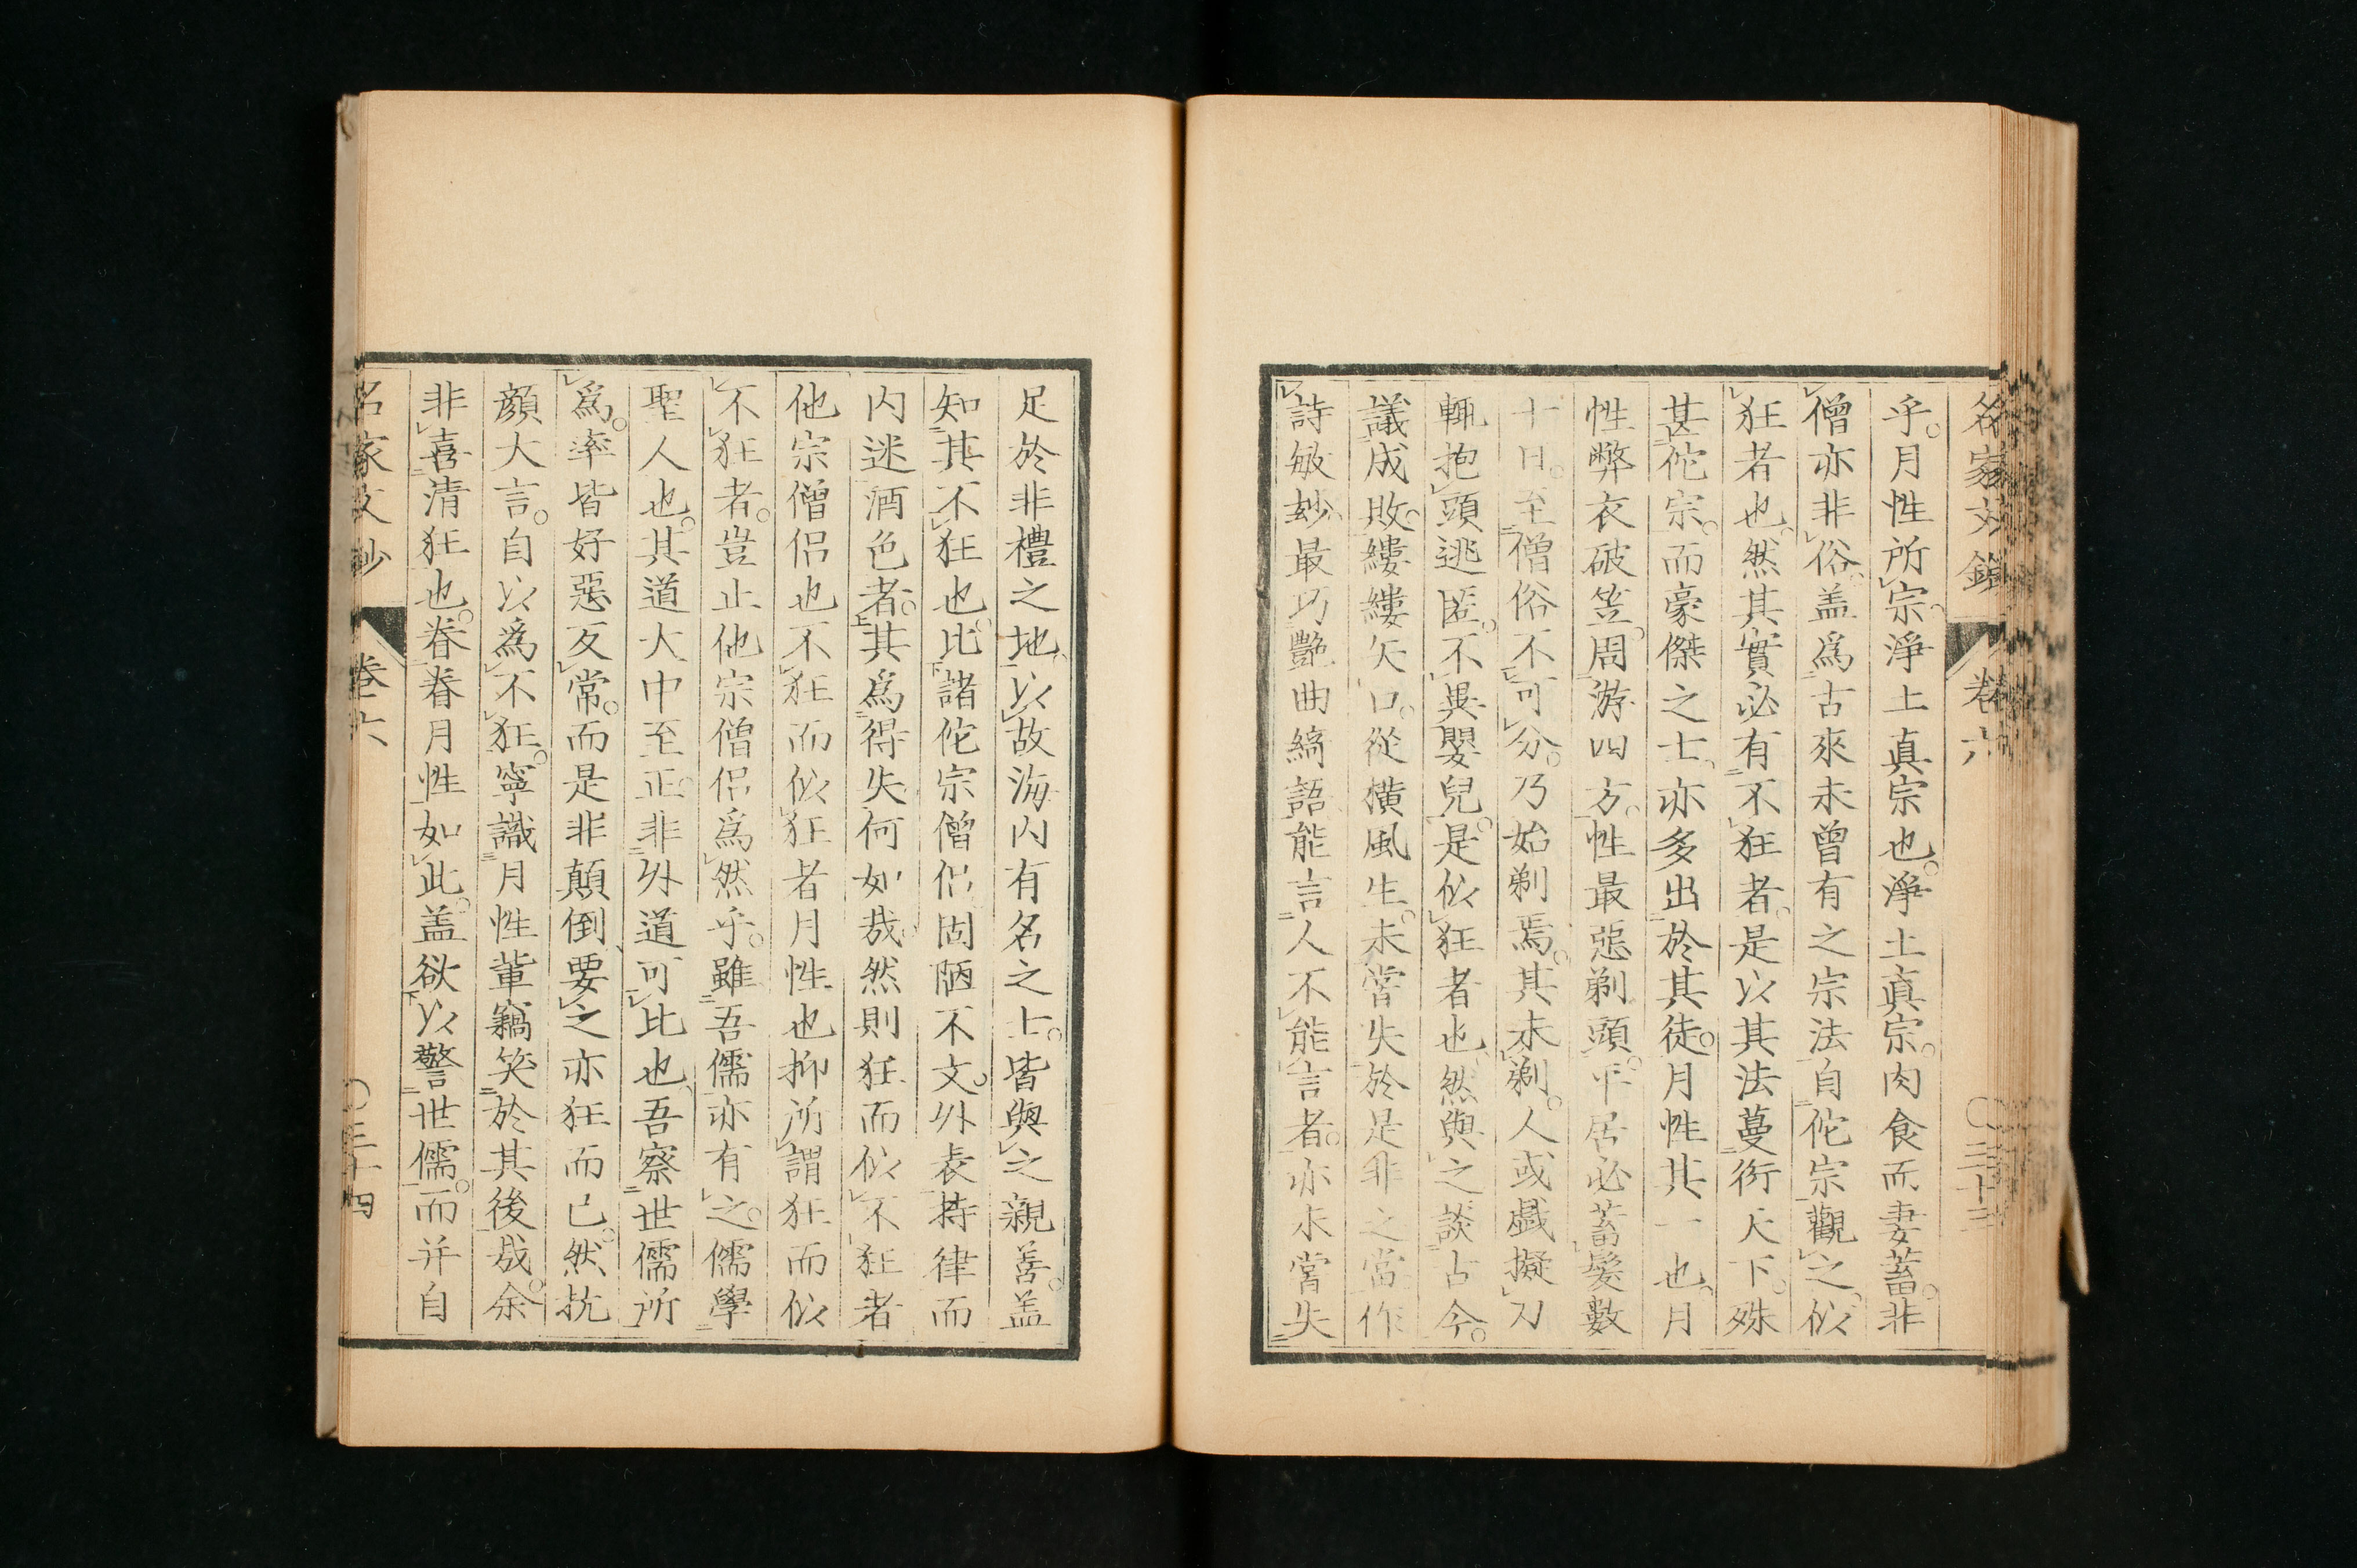 名家文鈔 卷六 〇三十三
乎。月性所宗。淨土真宗也。淨土真宗。肉食而妻蓄。非
僧亦非俗。盖爲古來未曾有之宗法自佗宗觀之。似
狂者也。然其實必有不狂者。是以其法蔓衍天下。殊
甚佗宗。而豪傑之士亦多出於其徒。月性其一也。月
性弊衣破笠。周游四方。性最惡剃頭。平居必蓄髮數
十日。至僧俗不可分。乃始剃焉。其未剃。人或戯擬刀
輒抱頭逃匿。不異嬰兒。是似狂者也。然與之談古今。
議成敗。縷縷矢口。從横風生。未嘗失於是非之當作
詩敏妙。最巧艷曲綺語能言人不能言者。亦未嘗失
足於非禮之地。以故海内有名之士。皆與之親善。盖
知其不狂也。比諸佗宗僧侶。固陋不文。外表持律而
内迷酒色者。其爲得失何如哉。然則狂而似不狂者
他宗僧侶也不狂而似狂者月性也抑所謂狂而似
不狂者。豈止他宗僧侶爲然乎。雖吾儒亦有之。儒學
聖人也。其道大中至正。非外道可比也、吾察世儒所
爲。率皆好惡反常。而是非顛倒、要之亦狂而已。然抗
顔大言。自以爲不狂。寧識月性輩竊笑於其後哉。余
非喜清狂也。眷眷月性如此。盖欲以警世儒。而并自
名家文鈔 卷六 〇三十四